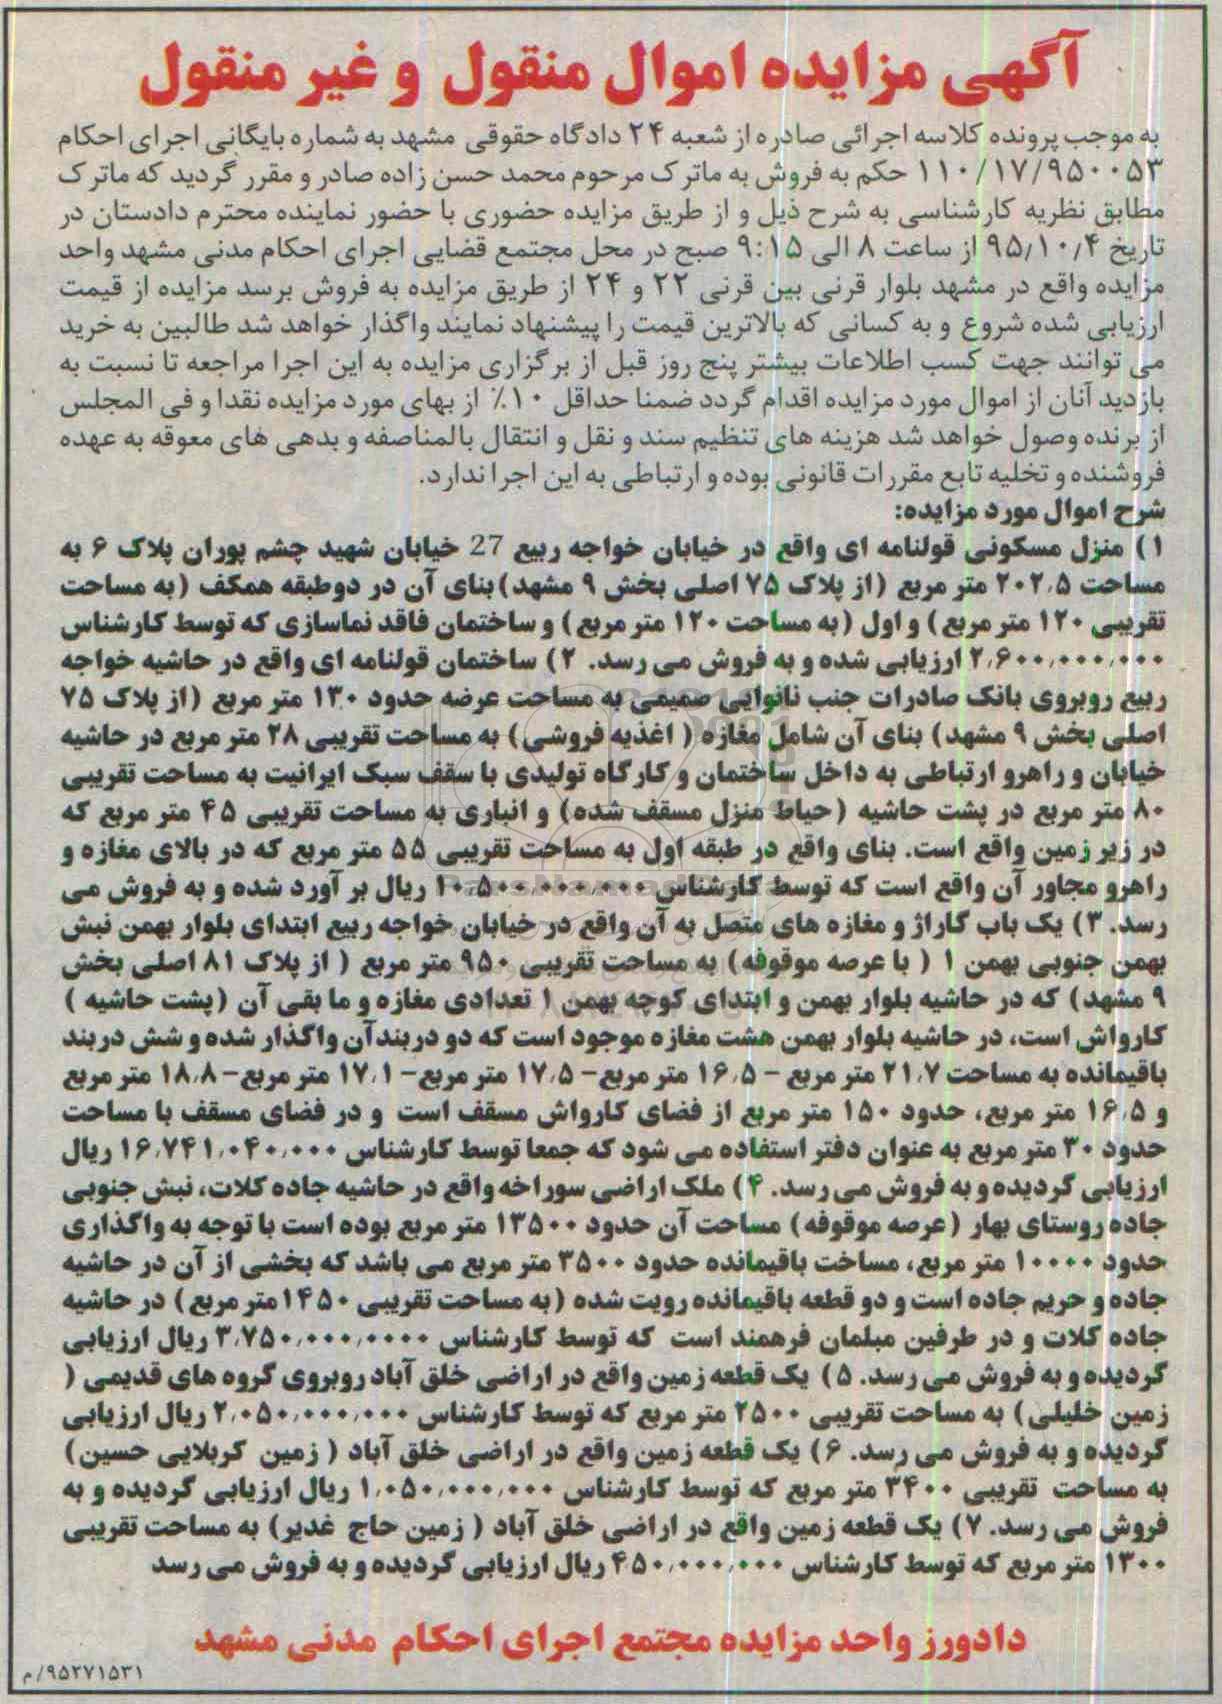 آگهی مزایده اموال منقول و غیر منقول
به موجب پرونده کلاسه اجرائی صادره از شعبه ۲۴ دادگاه حقوقی مشهد به شماره بایگانی اجرای احکام
۱۱۰/۱۷/۹۵۰۰۵۳ حکم به فروش به ماترک مرحوم محمد حسن زاده صادر و مقرر گردید که ماترک
مطابق نظریه کارشناسی به شرح ذیل و از طریق مزایده حضوری با حضور نماینده محترم دادستان در
تاریخ ۹۵/۱۰/۴ از ساعت ۸ الی ۹:۱۵ صبح در محل مجتمع قضایی اجرای احکام مدنی مشهد واحد
مزایده واقع در مشهد بلوار قرنی بین قرنی ۲۲ و ۲۴ از طریق مزایده به فروش برسد مزایده از قیمت
ارزیابی شده شروع و به کسانی که بالاترین قیمت را پیشنهاد نمایند واگذار خواهد شد طالبین به خرید
می توانند جهت کسب اطلاعات بیشتر پنج روز قبل از برگزاری مزایده به این اجرا مراجعه تا نسبت به
بازدید آنان از اموال مورد مزایده اقدام گردد ضمنا حداقل ۱۰٪ از بهای مورد مزایده نقدا و فی المجلس
از برنده وصول خواهد شد هزینه های تنظیم سند و نقل و انتقال بالمناصفه و بدهی های معوقه به عهده
فروشنده و تخلیه تابع مقررات قانونی بوده و ارتباطی به این اجرا ندارد.
شرح اموال مورد مزایده:
۱) منزل مسکونی قولنامه ای واقع در خیابان خواجه ربیع 27 خیابان شهید چشم پوران پلاک ۶ به
مساحت ۲۰۲٫۵ متر مربع (از پلاک ۷۵ اصلی بخش ۹ مشهد) بنای آن در دوطبقه همکف (به مساحت
تقریبی ۱۲۰ متر مربع) و اول (به مساحت ۱۲۰ متر مربع) و ساختمان فاقد نماسازی که توسط کارشناس
۲٫۶۰۰٫۰۰۰٫۰۰۰ ارزیابی شده و به فروش می رسد. ۲) ساختمان قولنامه ای واقع در حاشیه خواجه
ربیع روبروی بانک صادرات جنب نانوایی صمیمی به مساحت عرضه حدود ۱۳۰ متر مربع (از پلاک ۷۵
اصلی بخش ۹ مشهد) بنای آن شامل مغازه ( اغذیه فروشی) به مساحت تقریبی ۲۸ متر مربع در حاشیه
خیابان و راهرو ارتباطی به داخل ساختمان و کارگاه تولیدی با سقف سبک ایرانیت به مساحت تقریبی
۸۰ متر مربع در پشت حاشیه (حیاط منزل مسقف شده) و انباری به مساحت تقریبی ۴۵ متر مربع که
در زیر زمین واقع است. بنای واقع در طبقه اول به مساحت تقریبی ۵۵ متر مربع که در بالای مغازه و
راهرو مجاور آن واقع است که توسط کارشناس ۱۰٫۵۰۰٫۰۰۰٫۰۰۰ ریال بر آورد شده و به فروش می
رسد. ۳) یک باب گاراژ و مغازه های متصل به آن واقع در خیابان خواجه ربیع ابتدای بلوار بهمن نبش
بهمن جنوبی بهمن ۱ ( با عرصه موقوفه) به مساحت تقریبی ۹۵۰ متر مربع ( از پلاک ۸۱ اصلی بخش
۹ مشهد) که در حاشیه بلوار بهمن و ابتدای کوچه بهمن ۱ تعدادی مغازه و ما بقی آن (پشت حاشیه )
کارواش است، در حاشیه بلوار بهمن هشت مغازه موجود است که دو دربندآن واگذار شده و شش دربند
باقیمانده به مساحت ۲۱٫۷ متر مربع - ۱۶٫۵ متر مربع- ۱۷٫۵ متر مربع- ۱۷٫۱ متر مربع- ۱۸٫۸ متر مربع
و ۱۶٫۵ متر مربع، حدود ۱۵۰ متر مربع از فضای کارواش مسقف است و در فضای مسقف با مساحت
حدود ۳۰ متر مربع به عنوان دفتر استفاده می شود که جمعا توسط کارشناس ۱۶٫۷۴۱٫۰۴۰٫۰۰۰ ریال
ارزیابی گردیده و به فروش می رسد. ۴) ملک اراضی سوراخه واقع در حاشیه جاده کلات، نبش جنوبی
جاده روستای بهار (عرصه موقوفه) مساحت آن حدود ۱۳۵۰۰ متر مربع بوده است با توجه به واگذاری
حدود ۱۰۰۰۰ متر مربع، مساخت باقیمانده حدود ۳۵۰۰ متر مربع می باشد که بخشی از آن در حاشیه
جاده و حریم جاده است و دو قطعه باقیمانده رویت شده (به مساحت تقریبی ۱۴۵۰ متر مربع) در حاشیه
جاده کلات و در طرفین مبلمان فرهمند است که توسط کارشناس ۳٫۷۵۰٫۰۰۰٫۰۰۰۰ ریال ارزیابی
گردیده و به فروش می رسد. ۵) یک قطعه زمین واقع در اراضی خلق آباد روبروی گروه های قدیمی (
زمین خلیلی) به مساحت تقریبی ۲۵۰۰ متر مربع که توسط کارشناس ۲٫۰۵۰٫۰۰۰٫۰۰۰ ریال ارزیابی
گردیده و به فروش می رسد. ۶) یک قطعه زمین واقع در اراضی خلق آباد ( زمین کربلایی حسین)
به مساحت تقریبی ۳۴۰۰ متر مربع که توسط کارشناس ۱٫۰۵۰٫۰۰۰٫۰۰۰ ریال ارزیابی گردیده و به
فروش می رسد. ۷) یک قطعه زمین واقع در اراضی خلق آباد ( زمین حاج غدیر) به مساحت تقریبی
۱۳۰۰ متر مربع که توسط کارشناس ۴۵۰٫۰۰۰٫۰۰۰ ریال ارزیابی گردیده و به فروش می رسد
دادورز واحد مزایده مجتمع اجرای احکام مدنی مشهد
۹۵۲۷۱۵۳۱/م